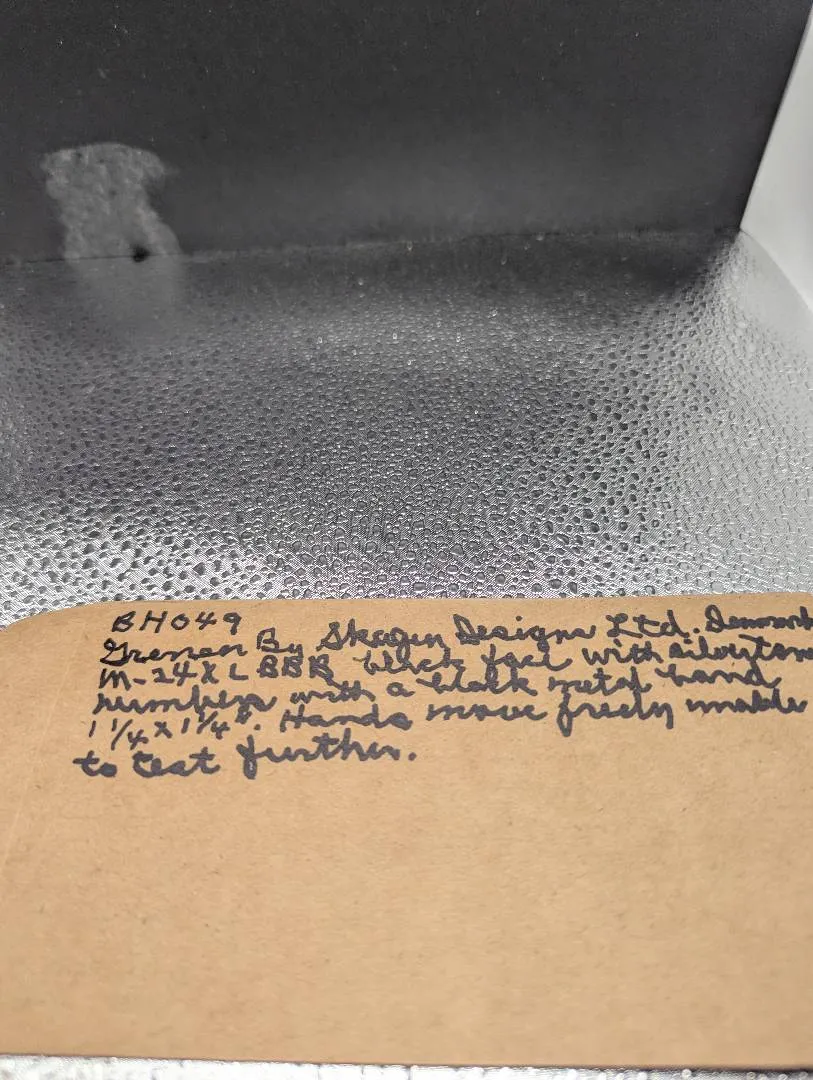 BH049
Grenen By Skagen Designs Ltd. Denmark
M-24XLBBB black face with silvertone
numbers with a black metal band
1 1/4 x 1 1/4". Hands move freely unable
to test further.